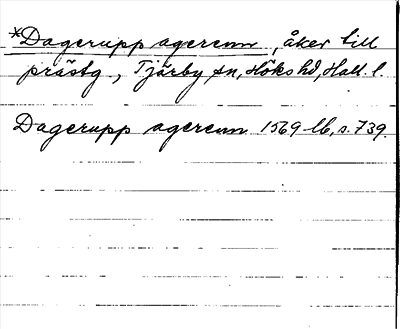 *Dagerupp agerenn, åker till
prästg., Tjärby sn, Höks hd, Hall. l.
Dagerupp agerenn 1569 lb, s. 739.